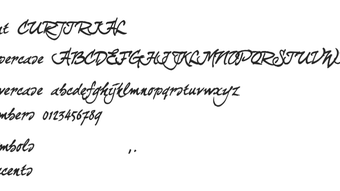 nt CURTTRIAL
percase ABCDEFGHIJKLMNOPQRSTUVW
vercase abcdefghijklmnopqrstuvwxyz
mbers 0123456789
mbols , .
ccents